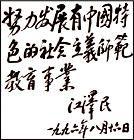 努力发展有中國特
色的社会主義师範
教育事業
江泽民
一九九六年八月六日